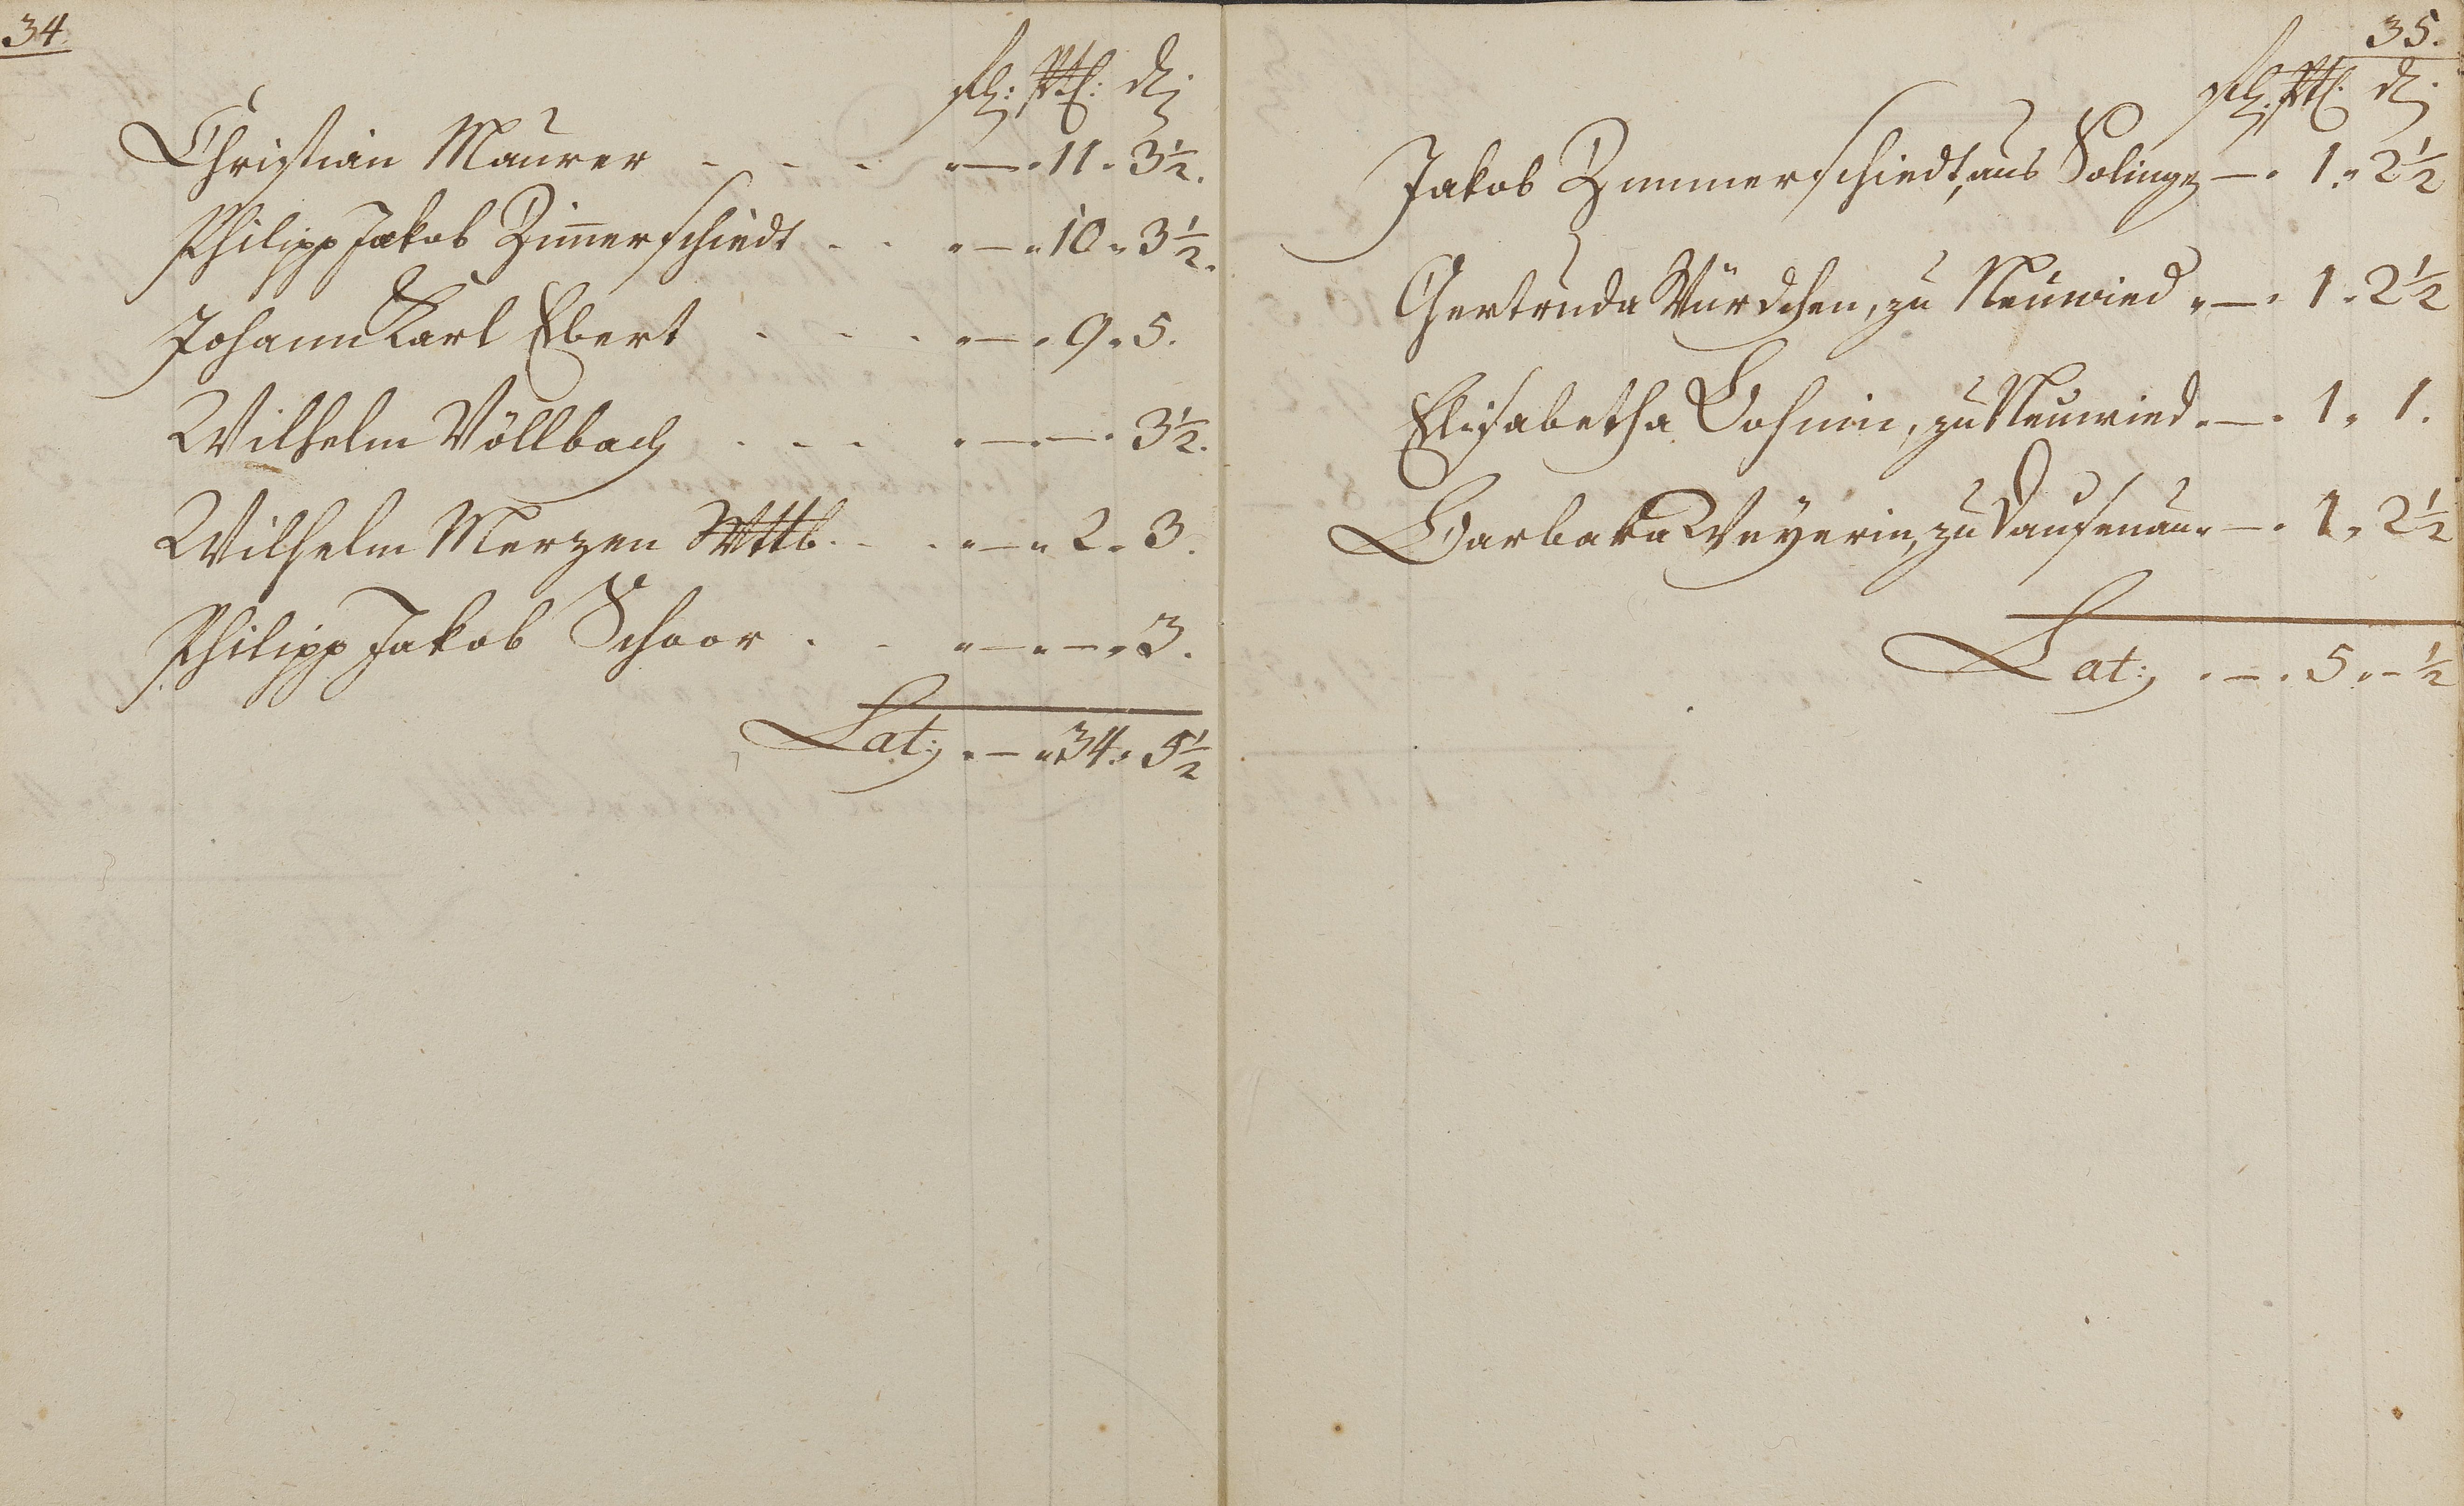 34.
fl: Btz: d.
Christian Maurer - - - " — " 11 " 3½.
Philipp Jakob Zim̄erschiedt - - " — " 10 " 3½.
Johann Karl Ebert - - - " — " 9 " 5.
Wilhelm Völlbach - - - " — " — " 3½.
Wilhelm Merzen Wttb. - - " — " 2 " 3.
Philipp Jakob Schoor - - " — " — " 3.
Lat: " — " 34 " 5½
35.
d.
Jakob Zimmerschiedt, aus Solingen — " 1 " 2½
Gertruda Würdchen, zu Neuwied " — " 1 " 2½
Elisabetha, zu Neuwied " — " 1 " 1.
Barbara Weÿerin, zu Dausenau " — " 1 " 2½
Lat: " — " 5 " — ½